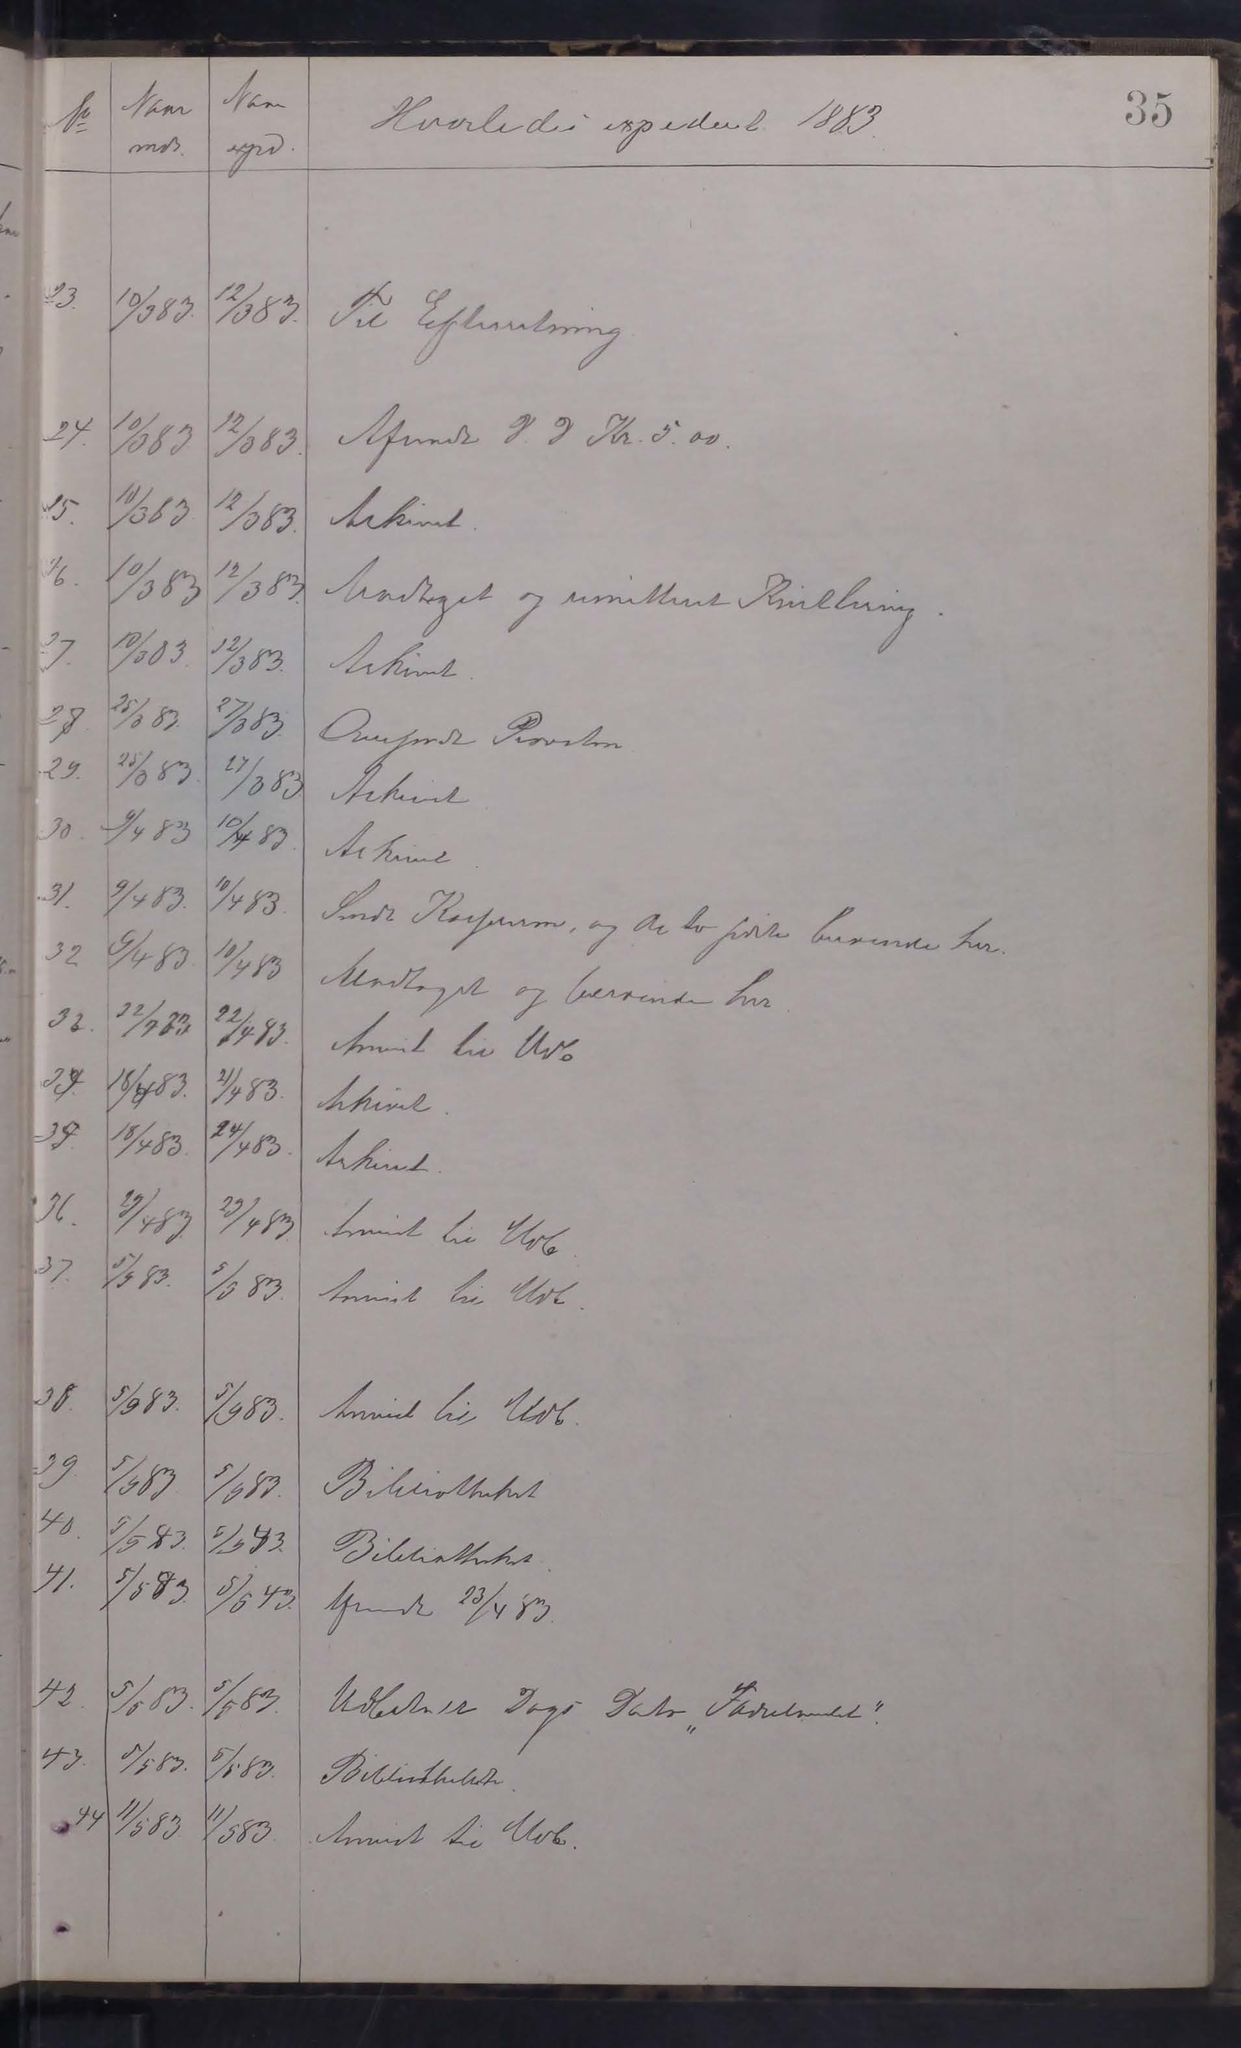 35
No Naar indk. Naar exped. Hvorledes expederet 1883.
23. 10/3 83. 12/3 83. Til Efterretning
24. 10/3 83 12/3 83. Afsendt P. P Kr. 5.00.
25. 10/3 83 12/3 83. Arkivet.
26. 10/3 83 12/3 83. Modtaget og remitteret Kvittering.
27. 10/3 83. 12/3 83. Arkivet.
28 25/3 83. 27/3 83. Oversendt Provsten
29. 25/3 83. 27/3 83 Arkivet
30. 9/4 83 10/4 83. Arkivet.
31. 9/4 83. 10/4 83. Sendt og de to sidste beroende her.
32 9/4 83. 10/4 83 Modtaget og beroende her.
33. 22/4 83 22/4 83. Anvist til Udb
34. 18/4 83. 21/4 83. Arkivet.
35. 18/4 83. 24/4 83. Arkivet.
36. 29/4 83. 29/4 83 Anvist til Udb.
37. 5/5 83. 5/5 83. Anvist til Udb.
38. 5/5 83. 5/5 83. Anvist til Udb.
39. 5/5 83 5/5 83. Bibliotheket
40. 5/5 83. 5/5 83. Bibliotheket.
41. 5/5 83. 5/5 83. Afsendt 23/4 83.
42. 5/5 83. 5/5 83. Dags Dato „Fædrelandet".
43. 5/5 83. 5/5 83. Bibliotheket.
44 11/5 83. 11/5 83. Anvist til Udb.